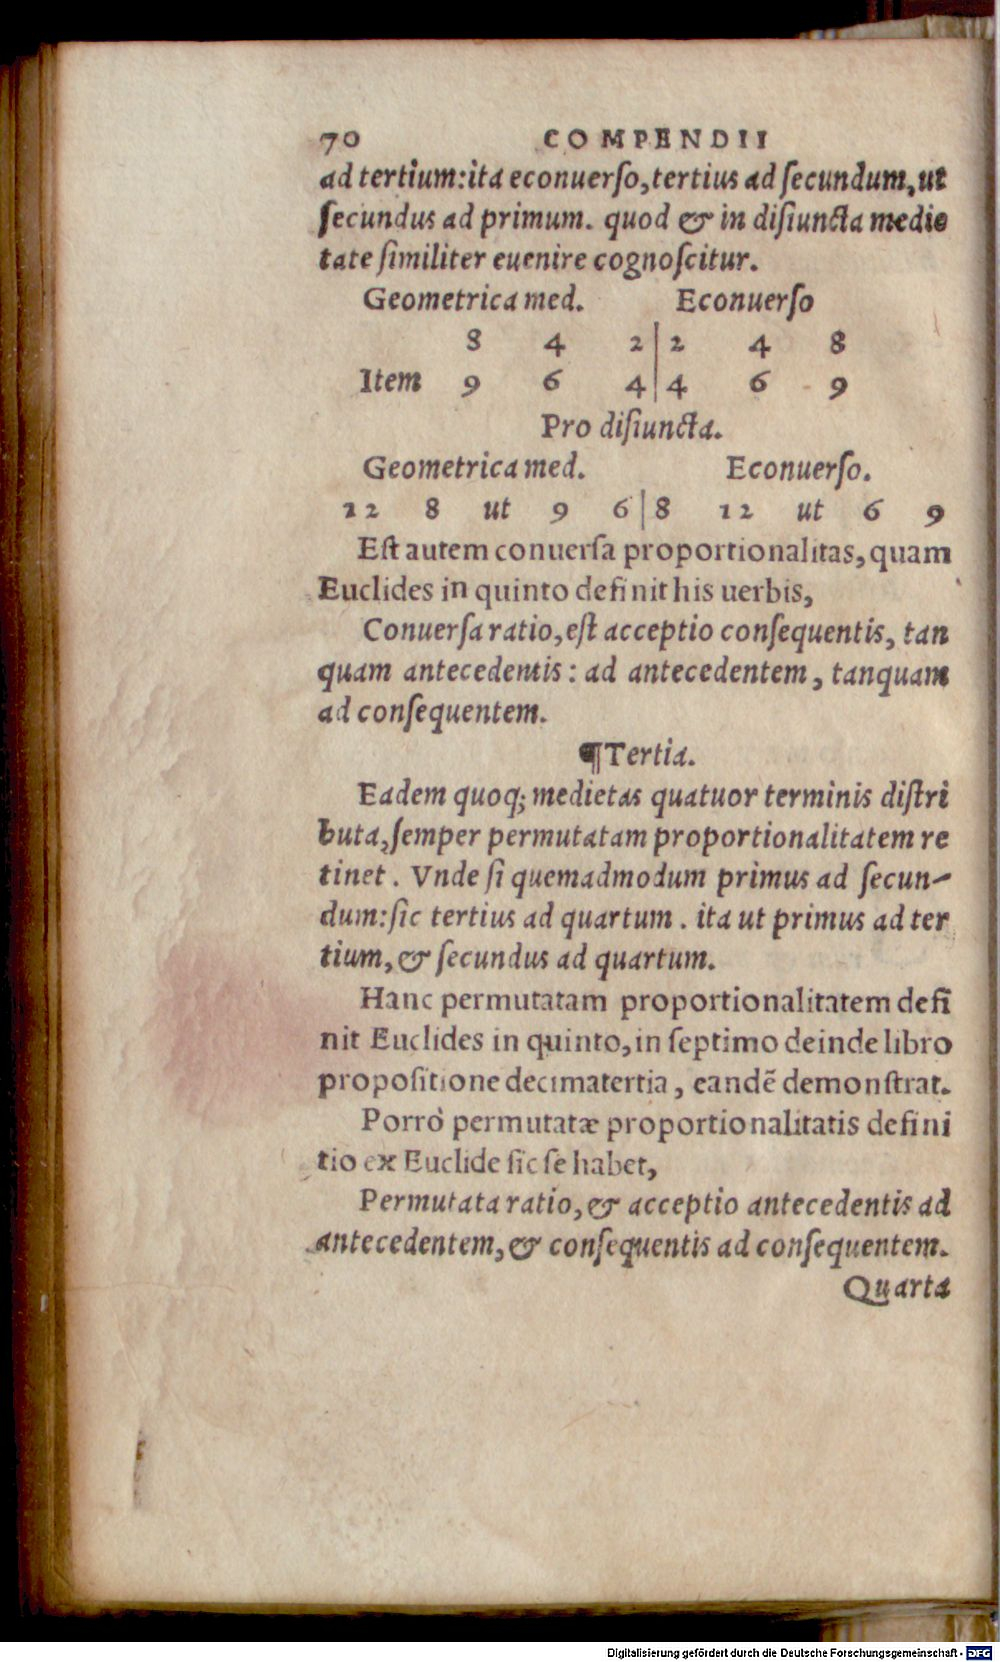 70 COMPENDII
ad tertium:ita econuerſo,tertius ad ſecundum,ut
ſecundus ad primum. quod & in diſiuncta medie
tate ſimiliter euenire cognoſcitur.
Geometrica med. Econuerſo
8 4 2 | 2 4 8
Item 9 6 4 | 4 6 9
Pro diſiuncta.
Geometrica med. Econuerſo.
12 8 ut 9 6 | 8 12 ut 6 9
Eſt autem conuerſa proportionalitas, quam
Euclides in quinto definit his uerbis,
Conuerſa ratio, eſt acceptio conſequentis, tan
quam antecedentis: ad antecedentem, tanquam
ad conſequentem.
¶Tertia.
Eadem quoq; medietas quatuor terminis diſtri
buta,ſemper permutatam proportionalitatem re
tinet. Vnde ſi quemadmodum primus ad ſecun-
dum:ſic tertius ad quartum. ita ut primus ad ter
tium, & ſecundus ad quartum.
Hanc permutatam proportionalitatem defi
nit Euclides in quinto, in ſeptimo deinde libro
propoſitione decimatertia, eandē demonſtrat.
Porrò permutatæ proportionalitatis defini
tio ex Euclide ſic ſe habet,
Permutata ratio, & acceptio antecedentis ad
antecedentem, & conſequentis ad conſequentem.
Quarta
Digitalisierung gefördert durch die Deutsche Forschungsgemeinschaft - DFG